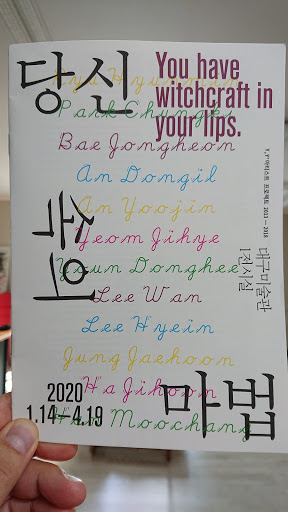 당신
You have
witchcraft in
your lips.
Ryu Hyunmin
Park Chungki
Bae Jongheon
An Dongil
An Yoojin
Yeom Jihye
Youn Donghee
Lee Wan
Lee Hyein
Jung Jaehoon
Ha Jihoon
Han Moochang
속의
아티스트 프로젝트
대구미술관
1전시실
마법
2020
1.14 – 4.19